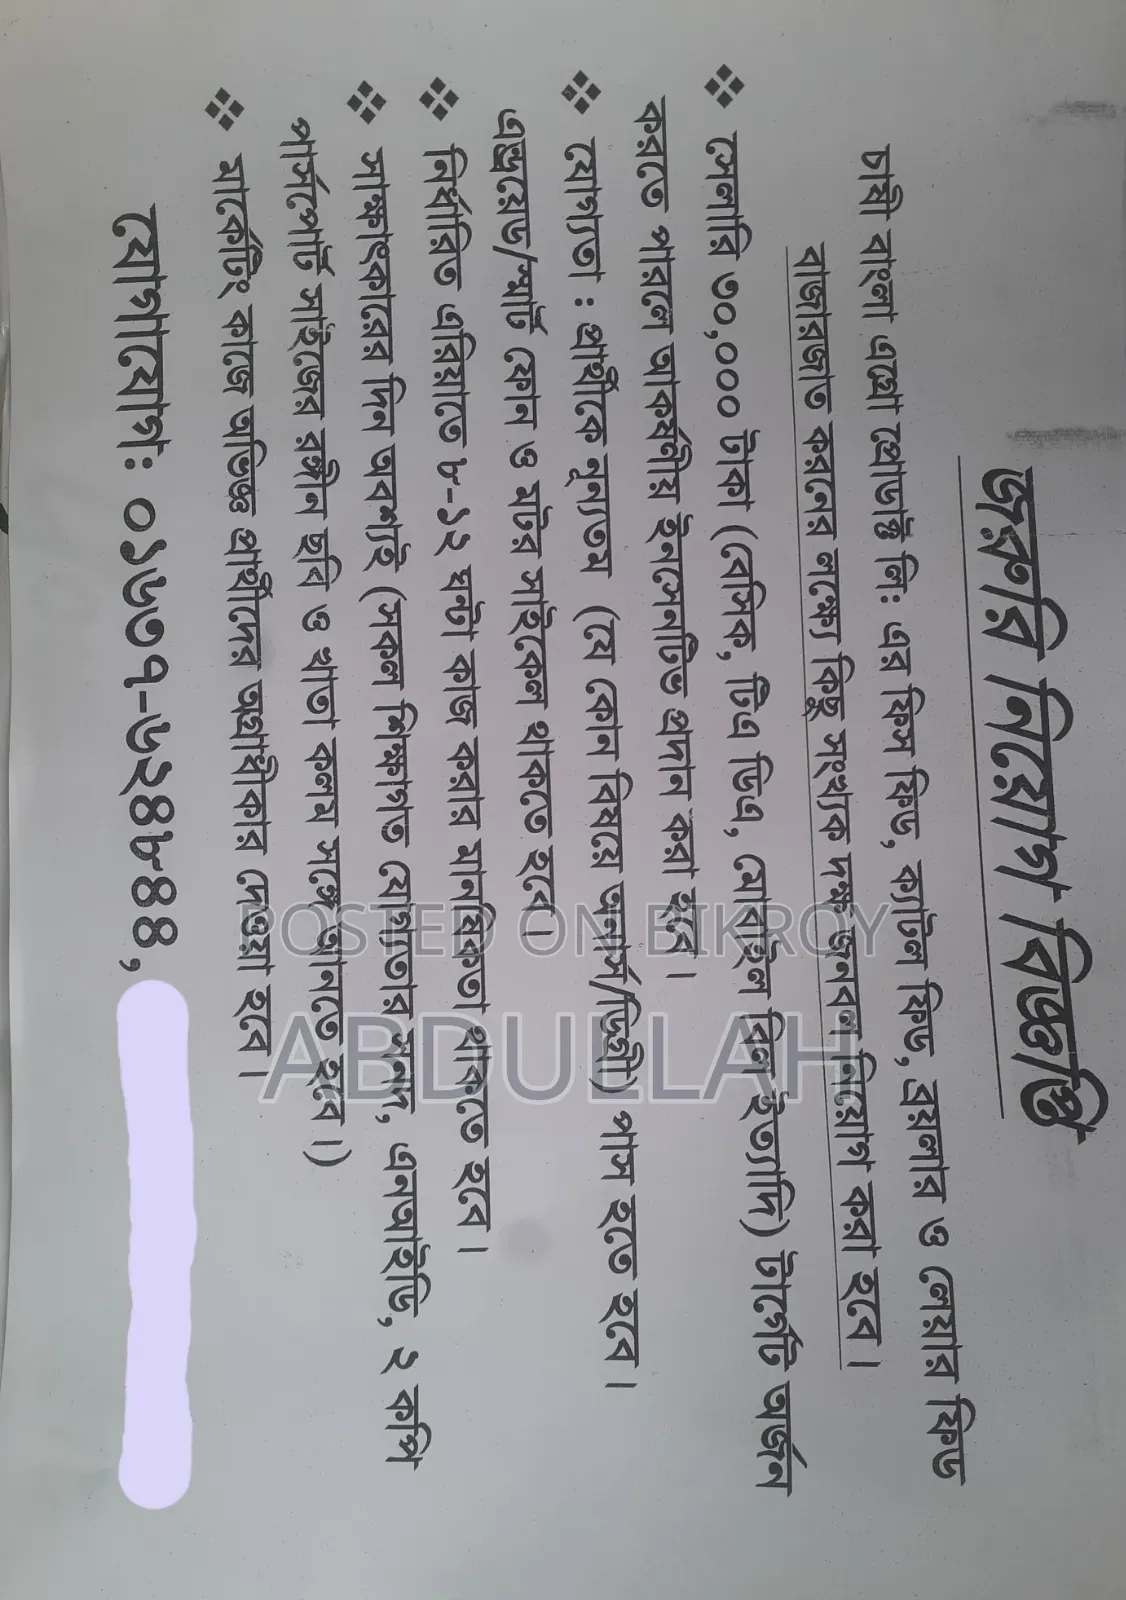 জরুরি নিয়োগ বিজ্ঞপ্তি
চাষী বাংলা এগ্রো প্রোডাক্ট লি: এর ফিস ফিড, ক্যাটল ফিড, ব্রয়লার ও লেয়ার ফিড
বাজারজাত করনের লক্ষ্যে কিছু সংখ্যক দক্ষ জনবল নিয়োগ করা হবে।
❖ সেলারি ৩০,০০০ টাকা (বেসিক, টিএ ডিএ, মোবাইল বিল ইত্যাদি) টার্গেট অর্জন
করতে পারলে আকর্ষণীয় ইনসেনটিভ প্রদান করা হবে।
❖ যোগ্যতা : প্রার্থীকে নূন্যতম (যে কোন বিষয়ে অনার্স/ডিগ্রী) পাস হতে হবে।
এন্ড্রয়েড/স্মার্ট ফোন ও মটর সাইকেল থাকতে হবে।
❖ নির্ধারিত এরিয়াতে ৮-১২ ঘন্টা কাজ করার মানষিকতা থাকতে হবে।
❖ সাক্ষাৎকারের দিন অবশ্যই (সকল শিক্ষাগত যোগ্যতার সনদ, এনআইডি, ২ কপি
পার্সপোর্ট সাইজের রঙ্গীন ছবি ও খাতা কলম সঙ্গে আনতে হবে।)
❖ মার্কেটিং কাজে অভিজ্ঞ প্রার্থীদের অগ্রাধীকার দেওয়া হবে।
যোগাযোগ: ০১৬৩৭-৬২৪৮৪৪,
POSTED ON BIKROY
ABDULLAH